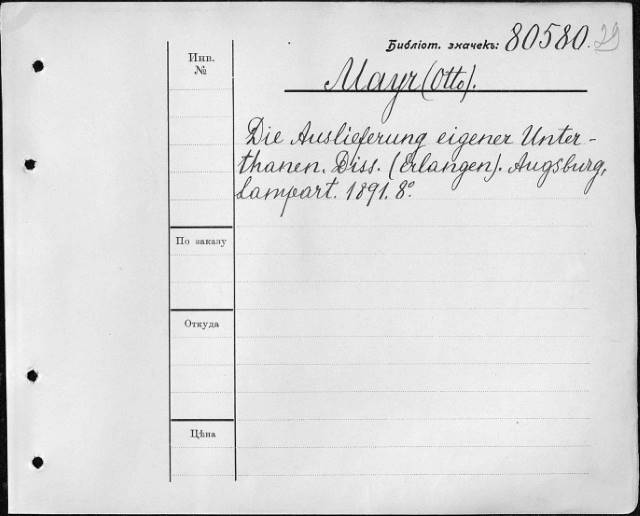 Библіот. значекъ: 80580. 29
Инв.
№
Mayr (Otto).
Die Auslieferung eigener Unter-
thanen. Diss. (Erlangen). Augsburg,
Lampart. 1891. 8º.
По заказу
Откуда
Цѣна